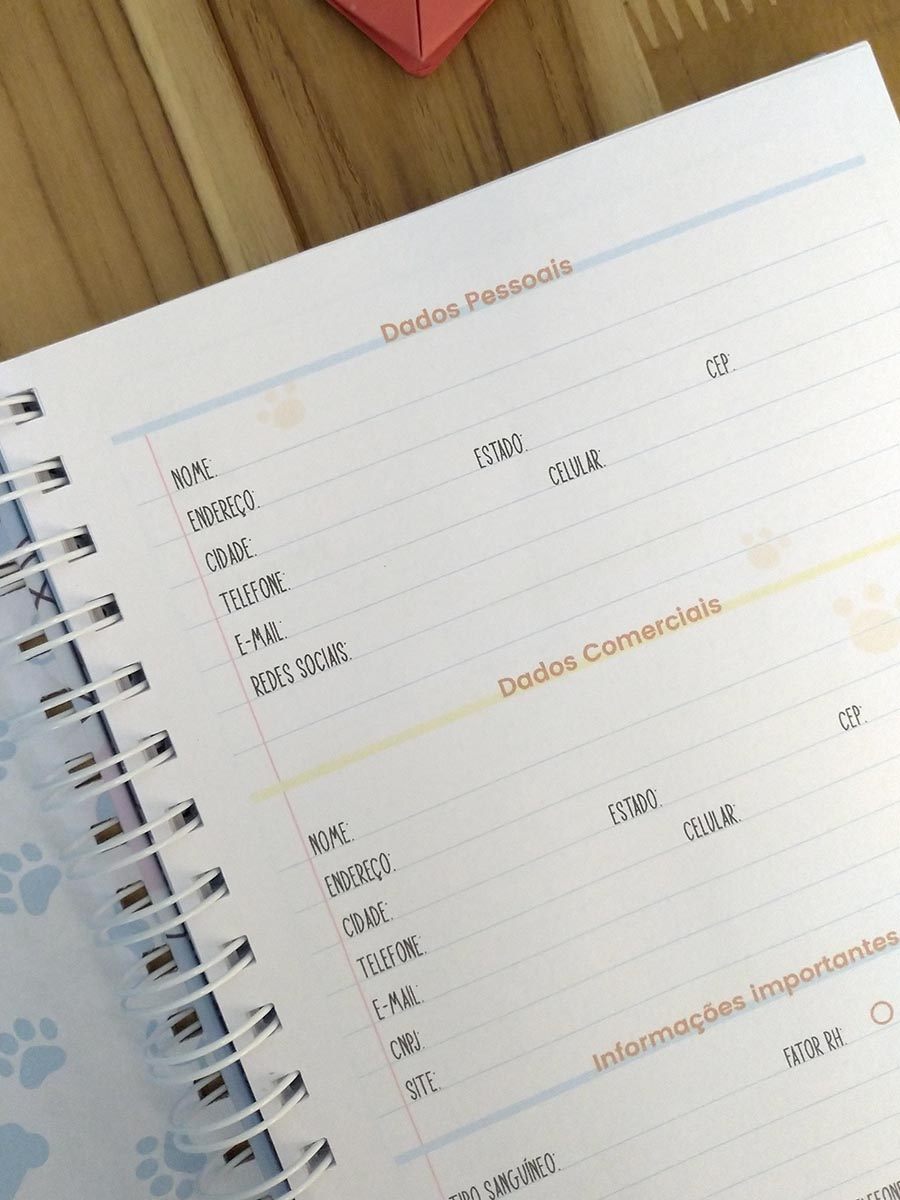 Dados Pessoais
NOME:
ENDEREÇO:
CIDADE: ESTADO: CEP:
TELEFONE: CELULAR:
E-MAIL:
REDES SOCIAIS:
Dados Comerciais
NOME:
ENDEREÇO:
CIDADE: ESTADO: CEP:
TELEFONE: CELULAR:
E-MAIL:
CNPJ:
SITE:
Informações importantes
TIPO SANGUÍNEO: FATOR RH: